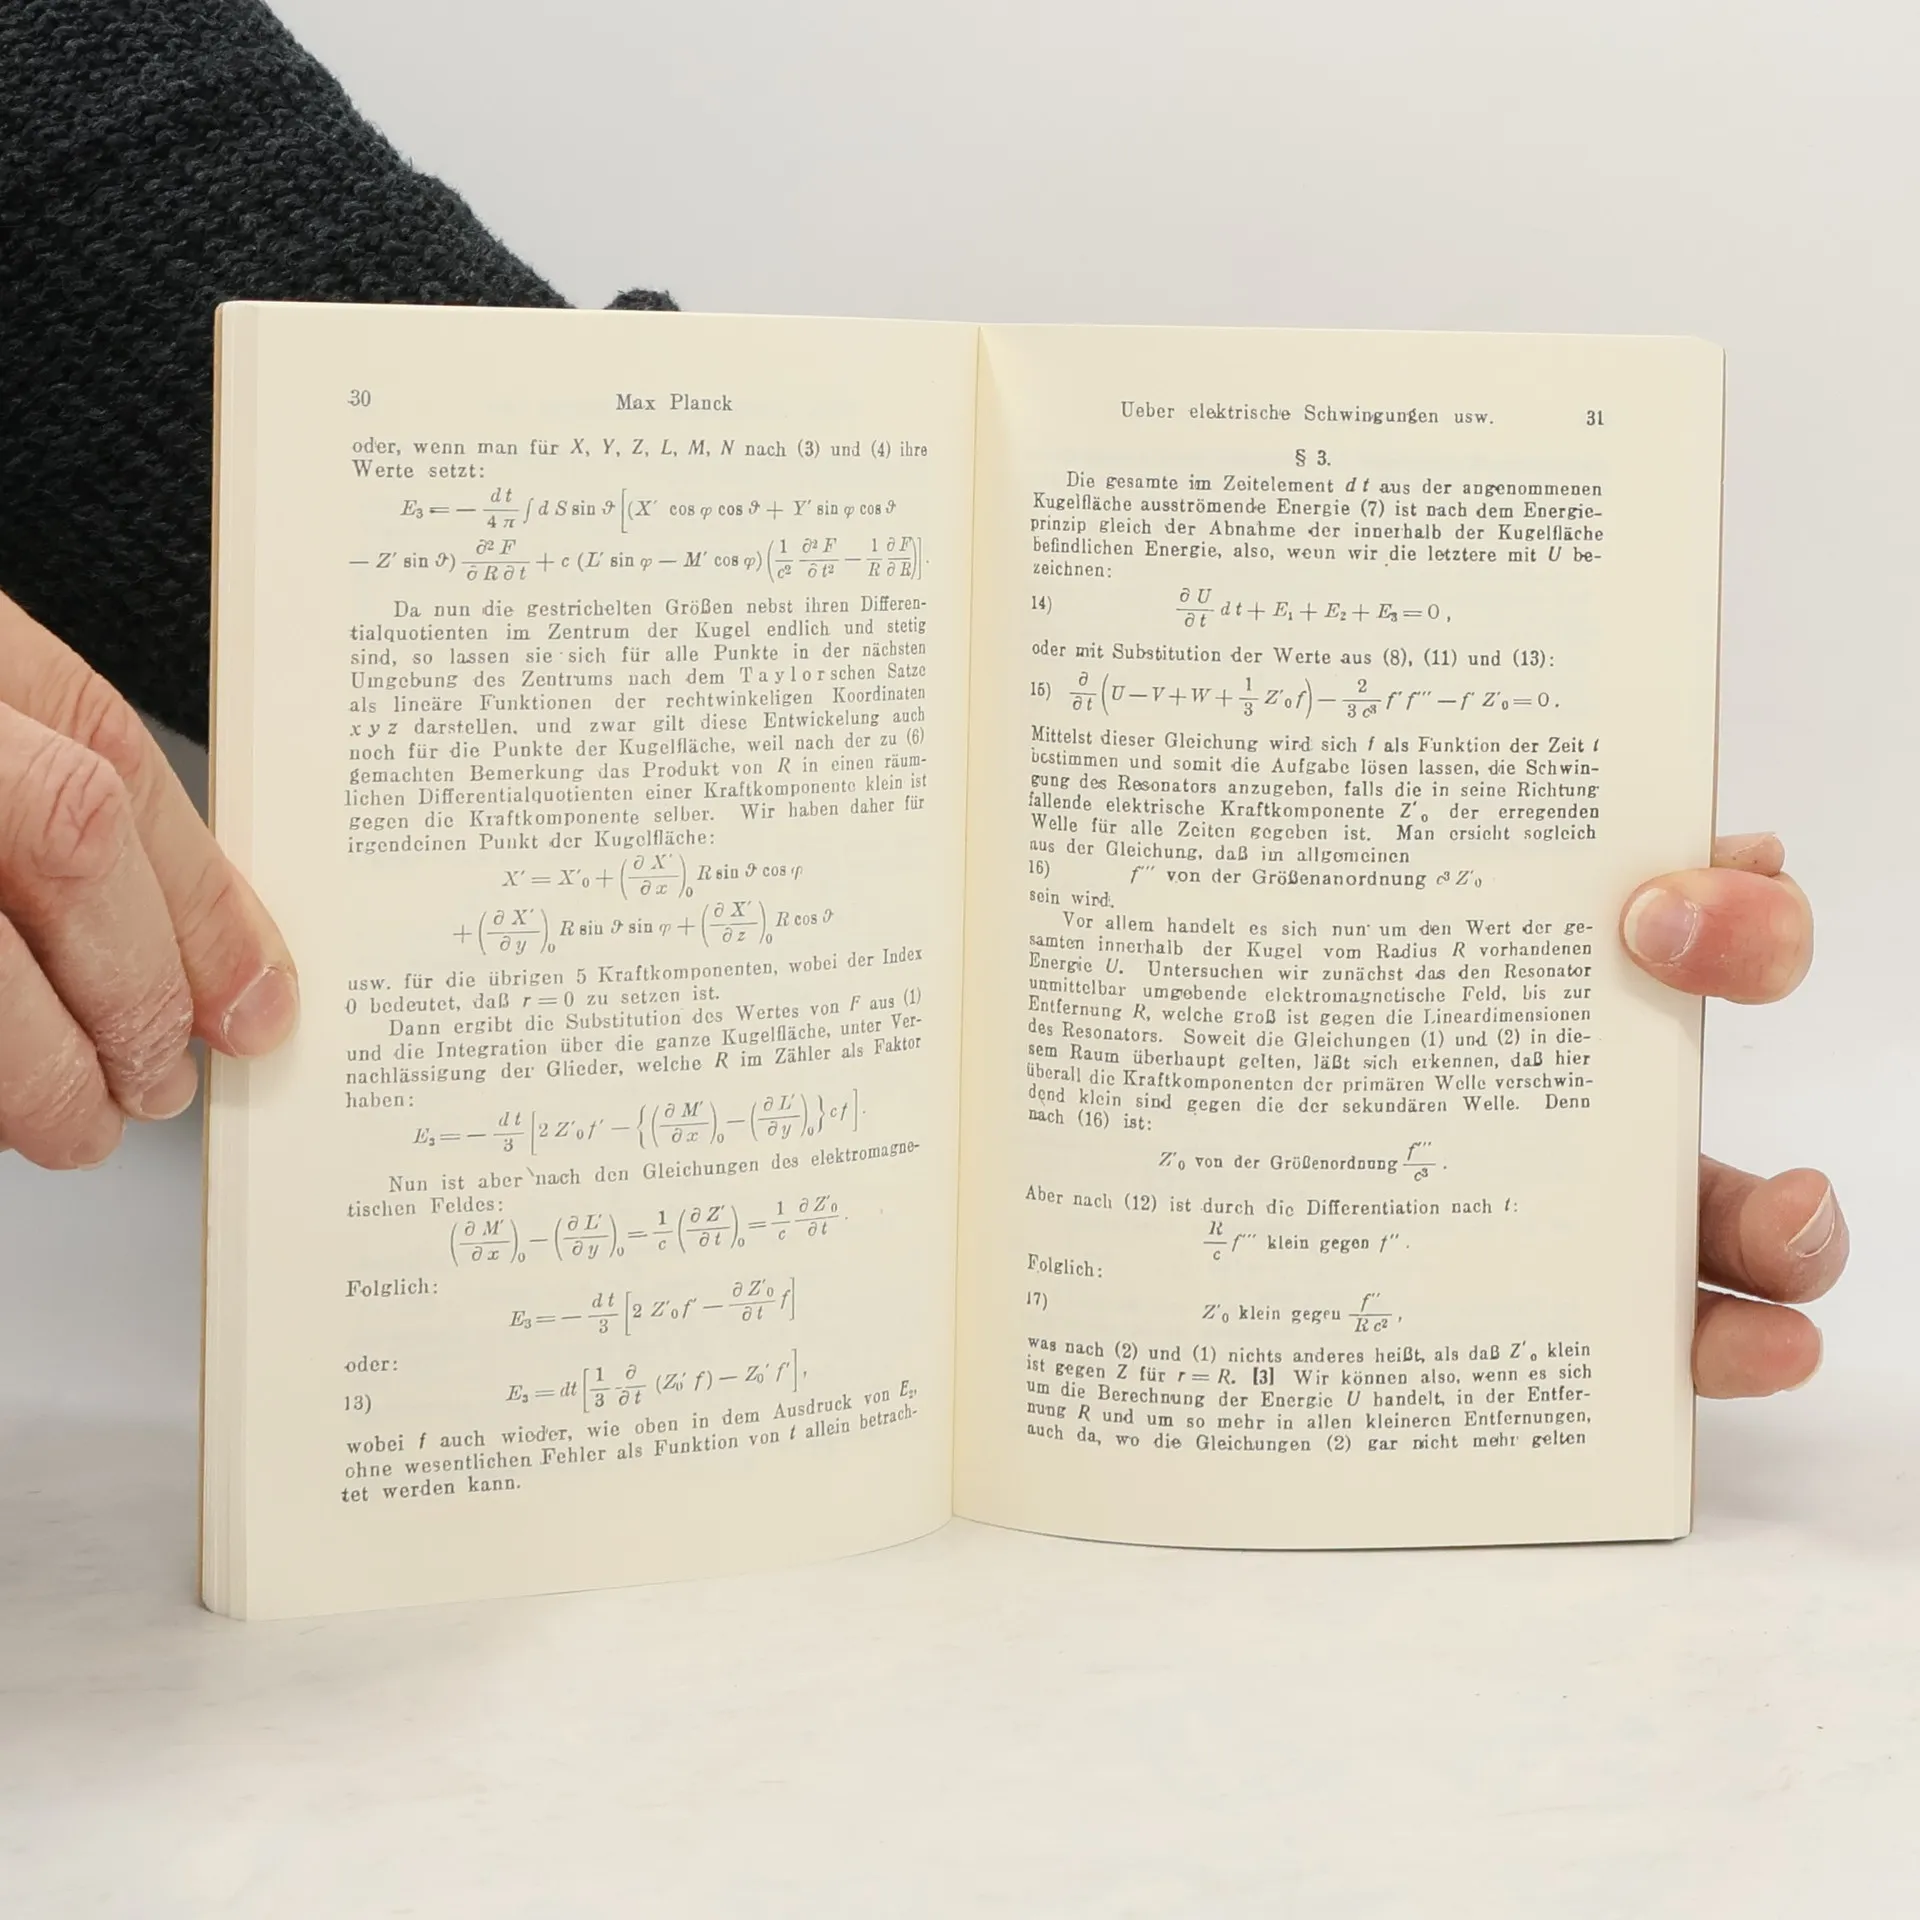 30 Max Planck
oder, wenn man für X, Y, Z, L, M, N nach (3) und (4) ihre
Werte setzt:
E₃ = − dt/4π ∫ d S sin ϑ [(X′ cos φ cos ϑ + Y′ sin φ cos ϑ
− Z′ sin ϑ) ∂² F/∂R∂t + c (L′ sin φ − M′ cos φ) (1/c² ∂² F/∂t² − 1/R ∂F/∂R)].
Da nun die gestrichelten Größen nebst ihren Differen-
tialquotienten im Zentrum der Kugel endlich und stetig
sind, so lassen sie sich für alle Punkte in der nächsten
Umgebung des Zentrums nach dem Taylorschen Satze
als lineäre Funktionen der rechtwinkeligen Koordinaten
x y z darstellen, und zwar gilt diese Entwickelung auch
noch für die Punkte der Kugelfläche, weil nach der zu (6)
gemachten Bemerkung das Produkt von R in einen räum-
lichen Differentialquotienten einer Kraftkomponente klein ist
gegen die Kraftkomponente selber. Wir haben daher für
irgendeinen Punkt der Kugelfläche:
X′ = X′₀ + (∂X′/∂x)₀ R sin ϑ cos φ
+ (∂X′/∂y)₀ R sin ϑ sin φ + (∂X′/∂z)₀ R cos ϑ
usw. für die übrigen 5 Kraftkomponenten, wobei der Index
0 bedeutet, daß r = 0 zu setzen ist.
Dann ergibt die Substitution des Wertes von F aus (1)
und die Integration über die ganze Kugelfläche, unter Ver-
nachlässigung der Glieder, welche R im Zähler als Faktor
haben:
E₃ = − dt/3 [2 Z′₀f′ − {(∂M′/∂x)₀ − (∂L′/∂y)₀} cf].
Nun ist aber nach den Gleichungen des elektromagne-
tischen Feldes:
(∂M′/∂x)₀ − (∂L′/∂y)₀ = 1/c (∂Z′/∂t)₀ = 1/c ∂Z′₀/∂t.
Folglich:
E₃ = − dt/3 [2 Z′₀f′ − ∂Z′₀/∂t f]
oder:
13) E₃ = dt [1/3 ∂/∂t (Z₀′ f) − Z₀′ f′],
wobei f auch wieder, wie oben in dem Ausdruck von E₂,
ohne wesentlichen Fehler als Funktion von t allein betrach-
tet werden kann.
Ueber elektrische Schwingungen usw. 31
§ 3.
Die gesamte im Zeitelement dt aus der angenommenen
Kugelfläche ausströmende Energie (7) ist nach dem Energie-
prinzip gleich der Abnahme der innerhalb der Kugelfläche
befindlichen Energie, also, wenn wir die letztere mit U be-
zeichnen:
14) ∂U/∂t dt + E₁ + E₂ + E₃ = 0,
oder mit Substitution der Werte aus (8), (11) und (13):
15) ∂/∂t (U − V + W + 1/3 Z′₀f) − 2/3c³ f′ f‴ − f′ Z′₀ = 0.
Mittelst dieser Gleichung wird sich f als Funktion der Zeit t
bestimmen und somit die Aufgabe lösen lassen, die Schwin-
gung des Resonators anzugeben, falls die in seine Richtung
fallende elektrische Kraftkomponente Z′₀ der erregenden
Welle für alle Zeiten gegeben ist. Man ersieht sogleich
aus der Gleichung, daß im allgemeinen
16) f‴ von der Größenanordnung c³ Z′₀
sein wird.
Vor allem handelt es sich nun um den Wert der ge-
samten innerhalb der Kugel vom Radius R vorhandenen
Energie U. Untersuchen wir zunächst das den Resonator
unmittelbar umgebende elektromagnetische Feld, bis zur
Entfernung R, welche groß ist gegen die Lineardimensionen
des Resonators. Soweit die Gleichungen (1) und (2) in die-
sem Raum überhaupt gelten, läßt sich erkennen, daß hier
überall die Kraftkomponenten der primären Welle verschwin-
dend klein sind gegen die der sekundären Welle. Denn
nach (16) ist:
Z′₀ von der Größenordnung f‴/c³.
Aber nach (12) ist durch die Differentiation nach t:
R/c f‴ klein gegen f″.
Folglich:
17) Z′₀ klein gegen f″/Rc²,
was nach (2) und (1) nichts anderes heißt, als daß Z′₀ klein
ist gegen Z für r = R. [3] Wir können also, wenn es sich
um die Berechnung der Energie U handelt, in der Entfer-
nung R und um so mehr in allen kleineren Entfernungen,
auch da, wo die Gleichungen (2) gar nicht mehr gelten